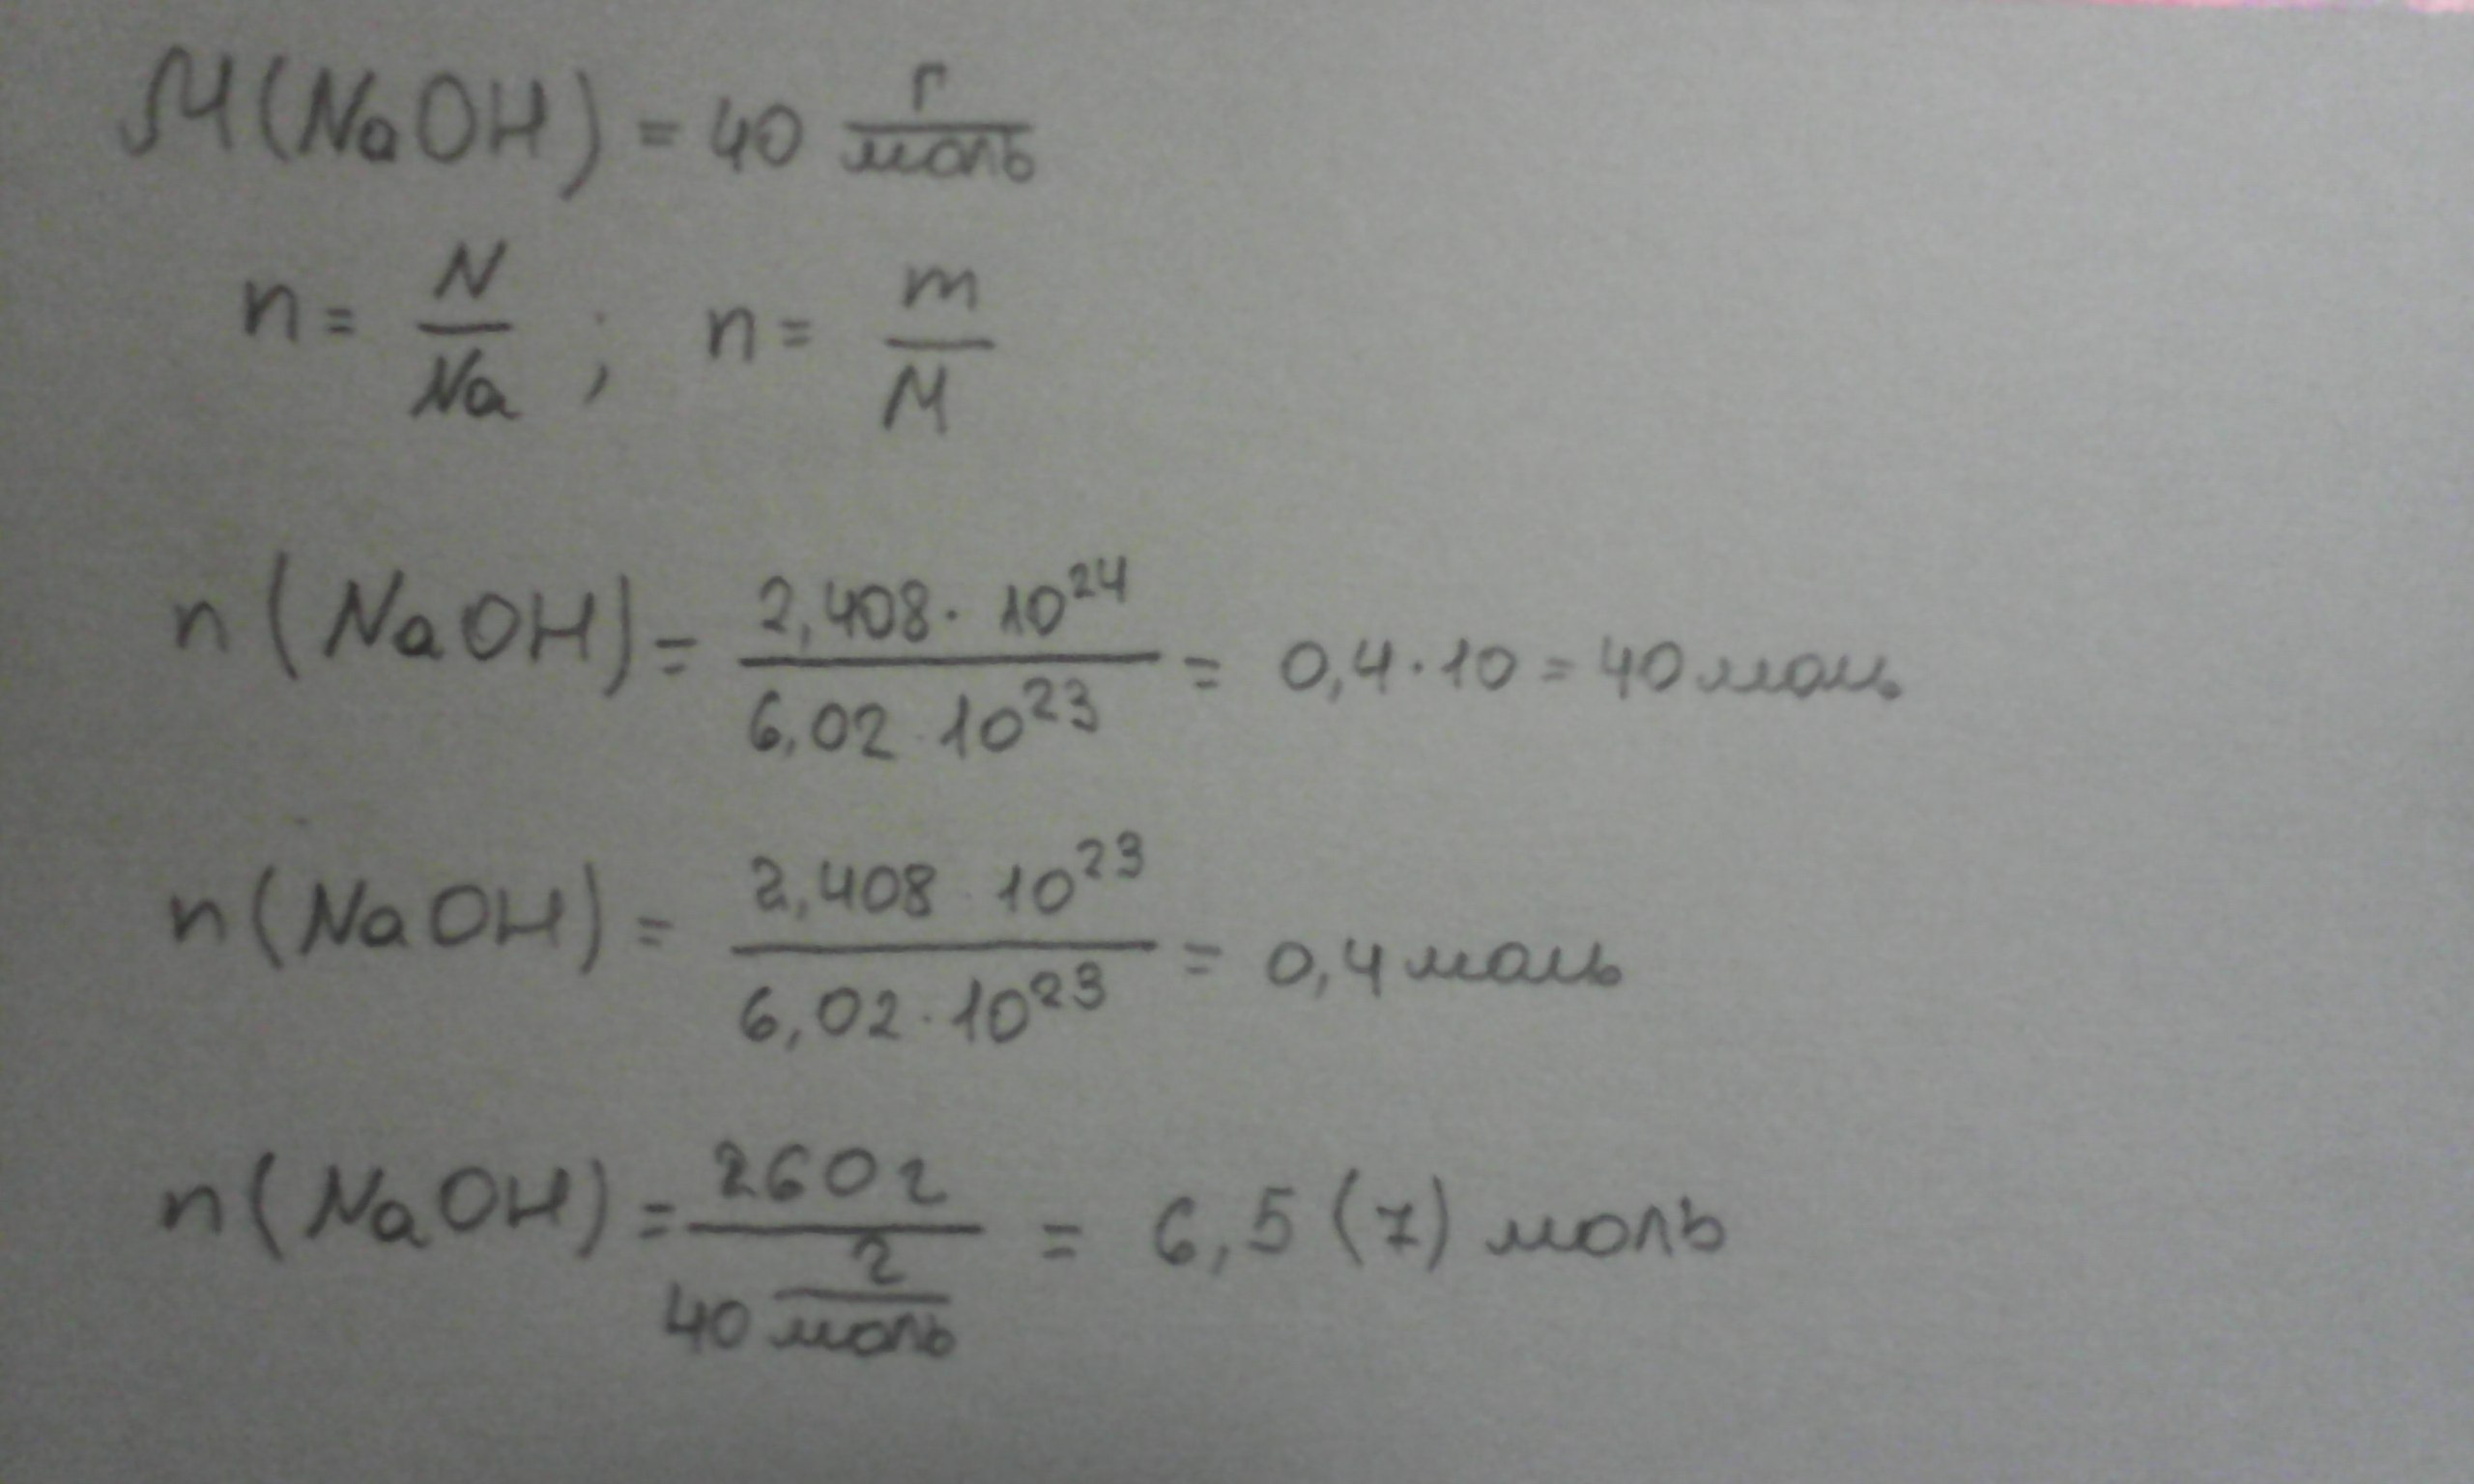 M(NaOH) = 40 г/моль
n = N/Na ; n = m/M
n(NaOH) = 2,408 · 10^24 / 6,02 · 10^23 = 0,4 · 10 = 40 моль
n(NaOH) = 2,408 · 10^23 / 6,02 · 10^23 = 0,4 моль
n(NaOH) = 260 г / 40 г/моль = 6,5 (7) моль